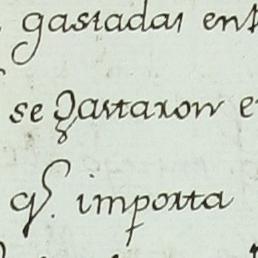 gastadas en
se gastaron e
q. importa